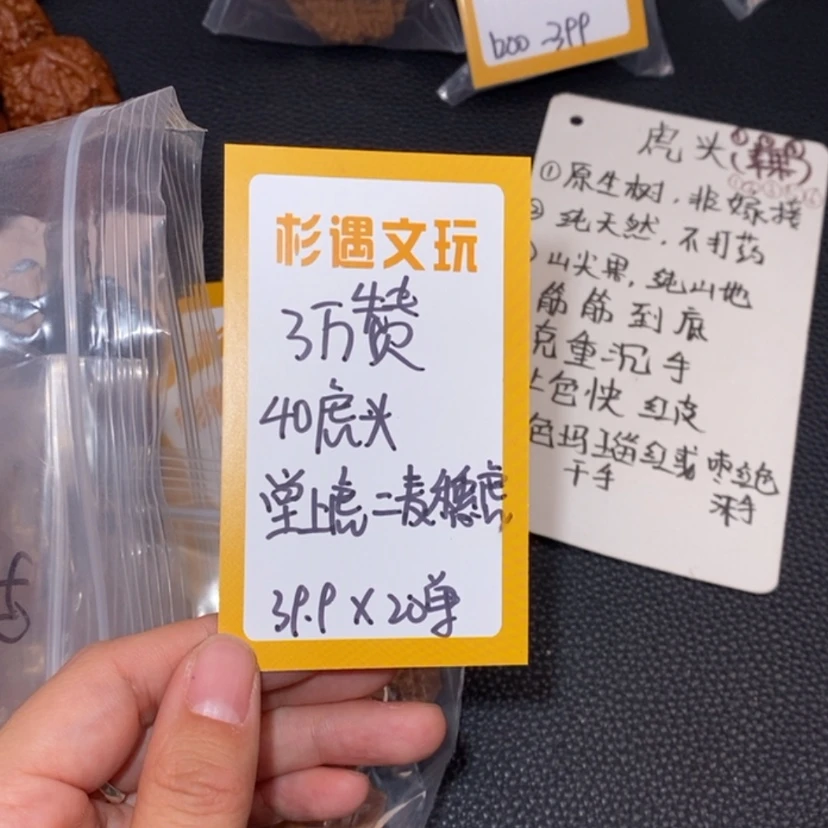 600 -399
杉遇文玩
3万赞
40虎头
堂上虎 二麦穗虎
39.9 X 20单
虎头
①原生树,非嫁接
② 纯天然,不打药
山尖果,纯山地
筋筋到底
克重沉手
上色快 红皮
色玛瑙红或枣红色
干手